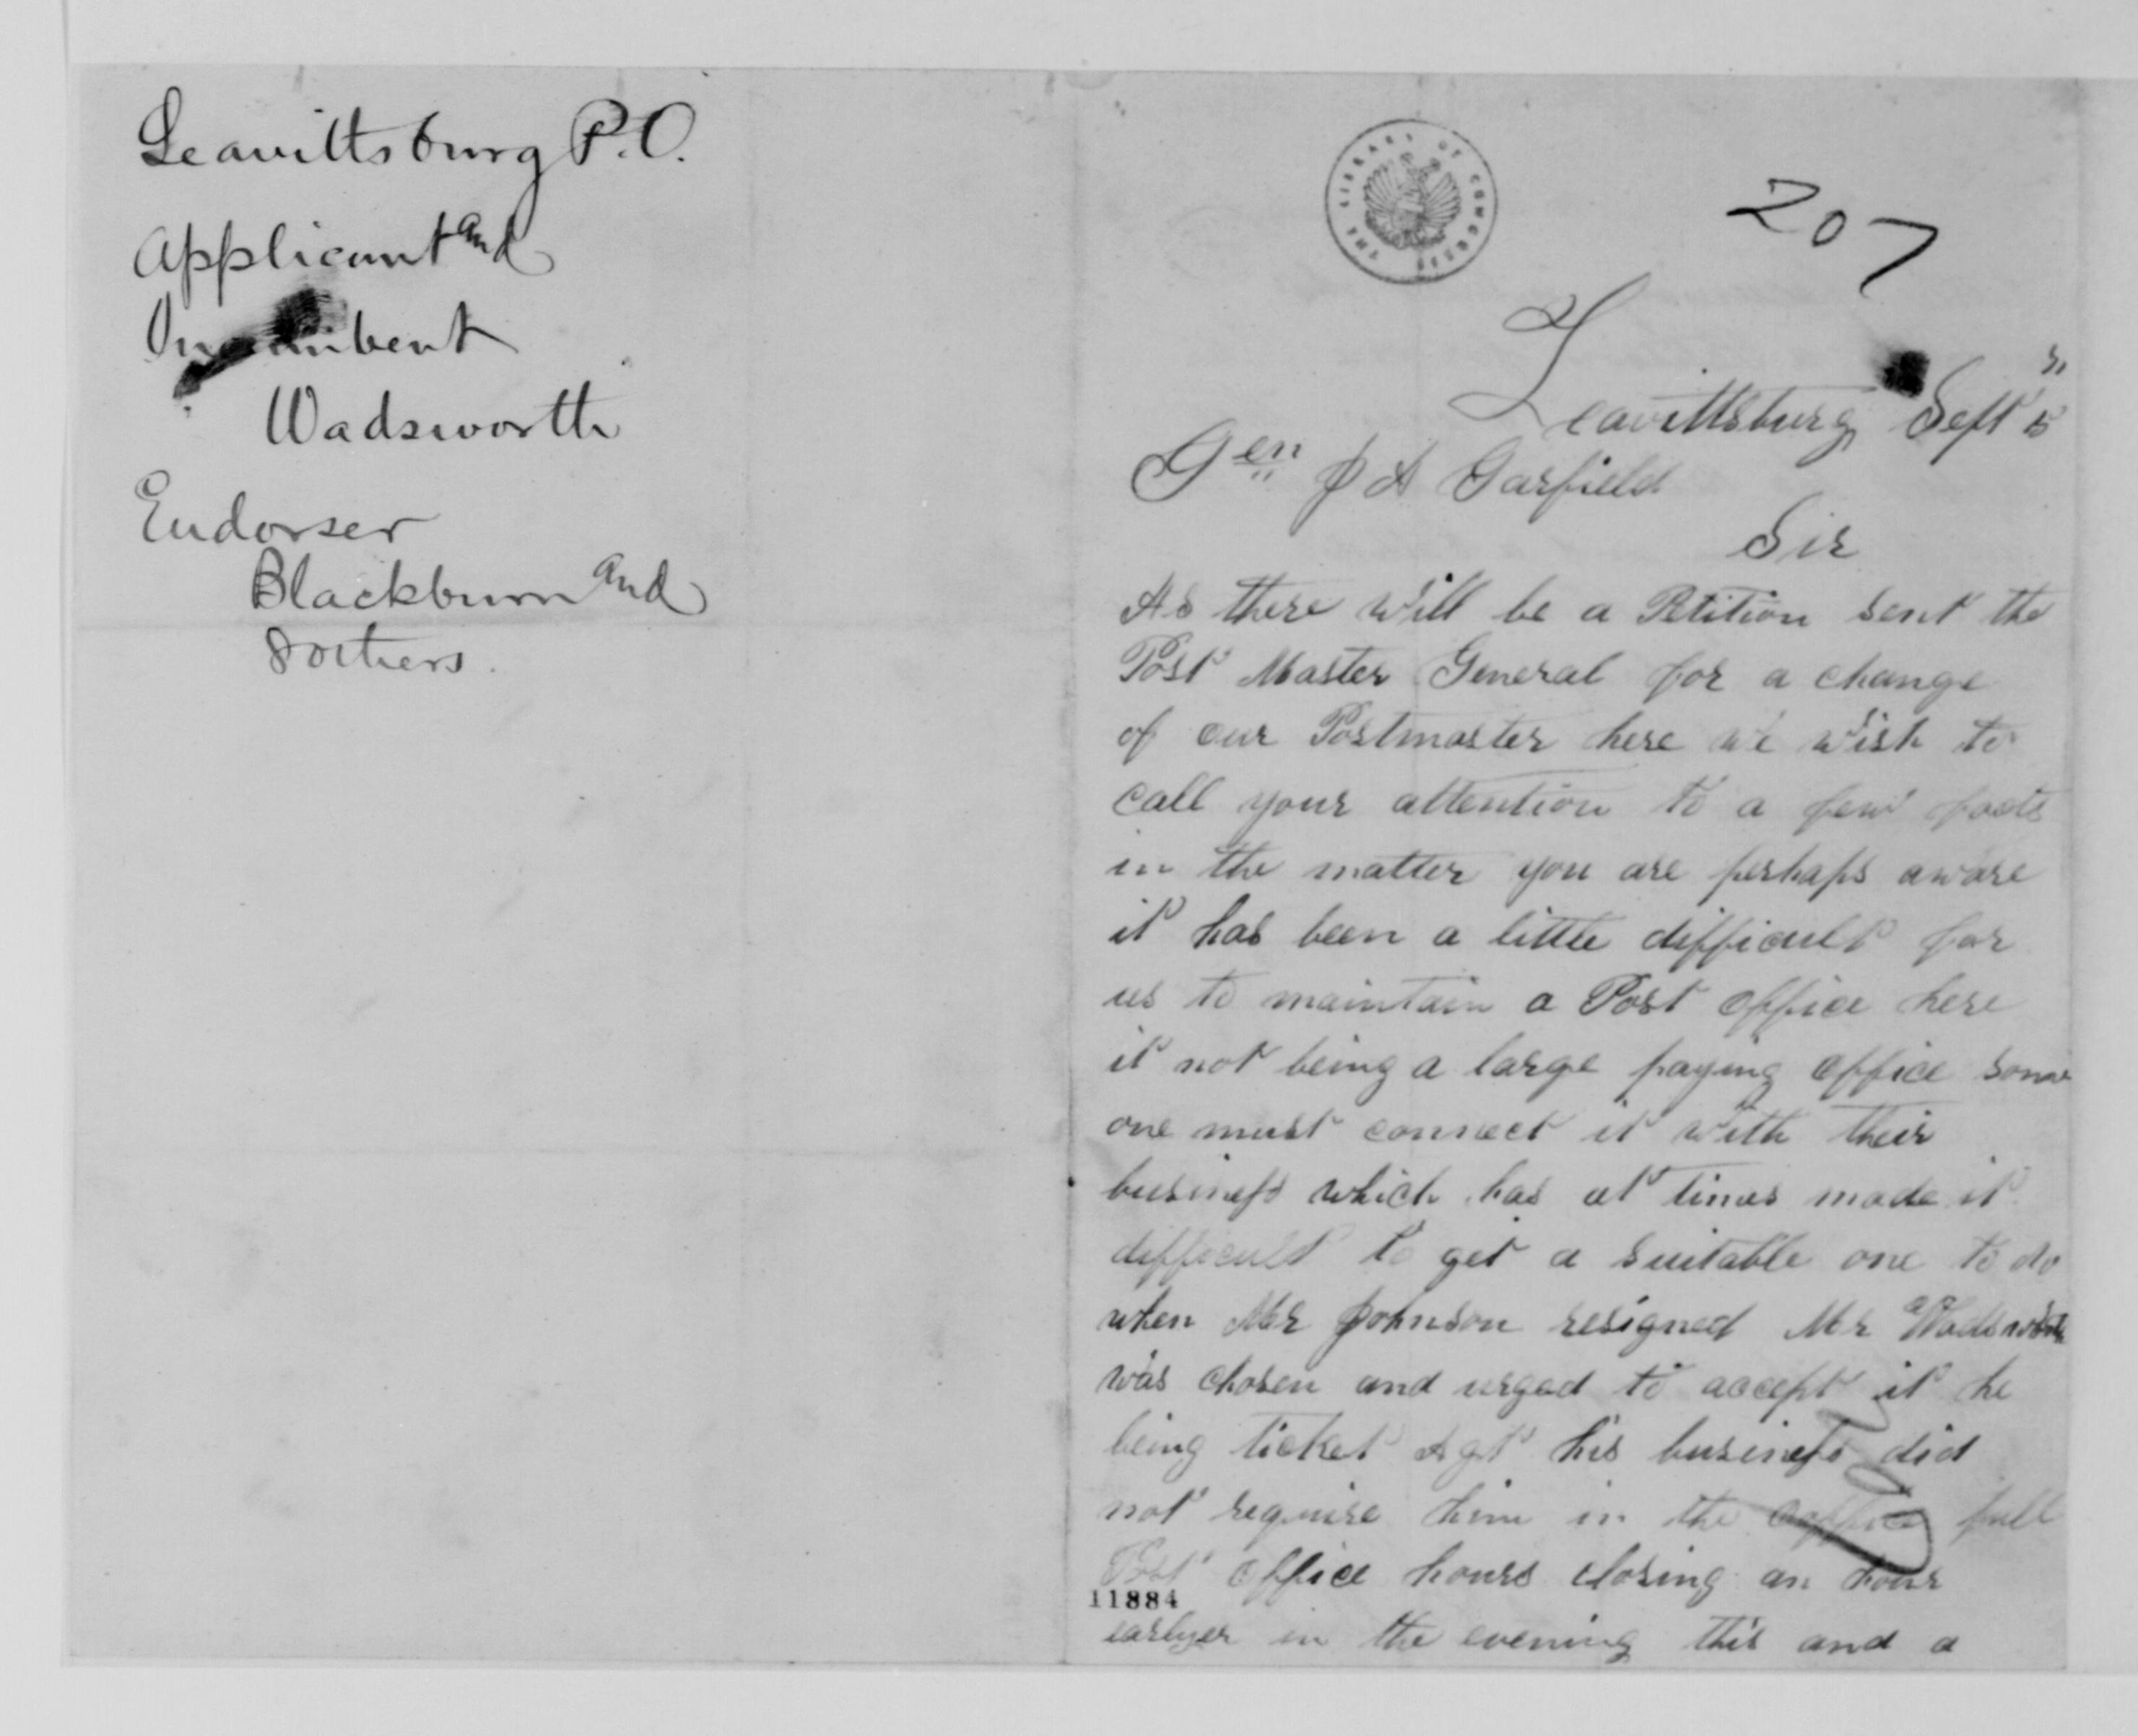 Leavittsburg P.O.
Applicant and
Incumbent
Wadsworth
Endorser
Blackburn and
8 others.
THE LIBRARY OF CONGRESS
207
Leavittsburg Sept 15
Gen J A Garfield
Sir
As there will be a Petition sent the
Post Master General for a change
of our Postmaster here we wish to
call your attention to a few facts
in the matter you are perhaps aware
it has been a little difficult for
us to maintain a Post office here
it not being a large paying office some
one must connect it with their
business which has at times made it
difficult to get a suitable one to do
when Mr Johnson resigned Mr Wadsworth
was chosen and urged to accept it he
being ticket Agt his business did
not require him in the office full
Post office hours closing an hour
11884
earlyer in the evening this and a